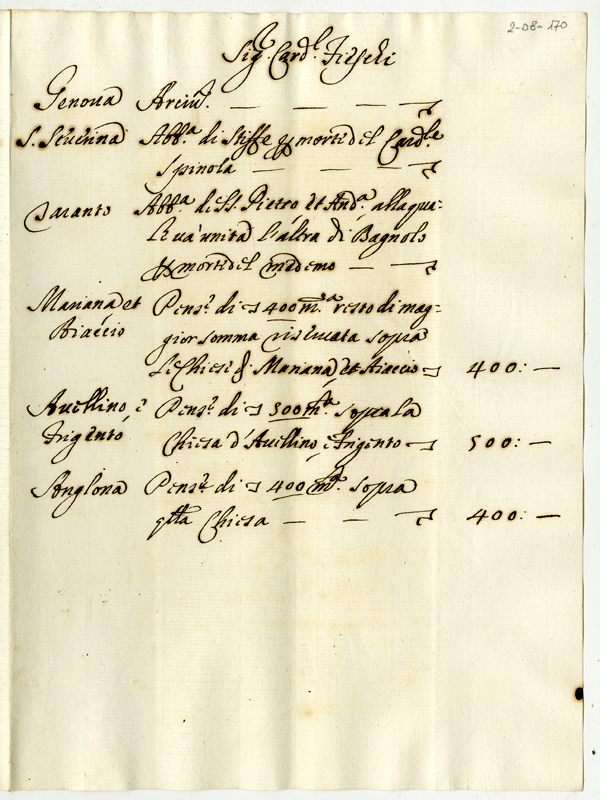 2-08-170
Sig.r Card.l Fieschi
Genova Arciv.
S. Severina Abb.a di Stisse p morte del Card.le
Spinola
Taranto Abb.a di SS. Pietro et And.a alla qua=
le và unita l'altra di Bagnolo
p morte del med.emo
Mariana et Pens.e di 400 m.a resto di mag=
Aiaccio gior somma riservata sopra
le Chiese di Mariana et Aiaccio 400: —
Avellino, e Pens.e di 500 m.a sopra la
Frigento Chiesa d'Avellino, e Frigento 500: —
Anglona Pens.e di 400 m.a sopra
q.tta Chiesa 400: —